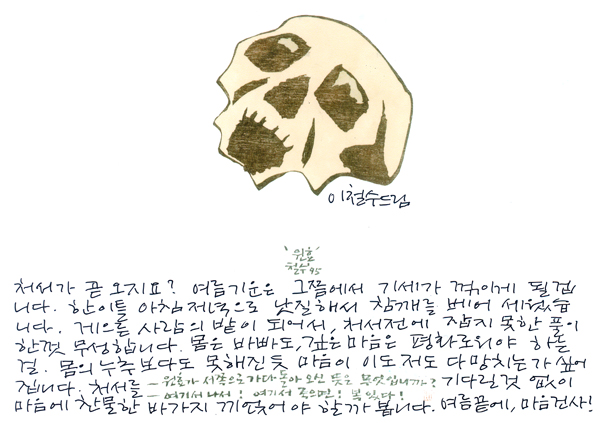 이철수드림
'원효'
철수 95
처서가 곧 오지요? 여름기운은 그쯤에서 기세가 꺾이게 될겝
니다. 한 이틀 아침저녁으로 낫질해서 참깨를 베어 세웠습
니다. 게으른 사람의 밭이 되어서, 처서전에 잡지 못한 풀이
한껏 무성합니다. 몸은 바빠도, 깊은 마음은 평화로워야 하는
걸. 몸의 누추보다도 못해진 듯 마음이 이도 저도 다 망치는가 싶어
집니다. 처서를 - 원효가 서쪽으로 가다 돌아오신 뜻은 무엇입니까? 기다릴것 없이
- 여기서 나서! 여기서 죽으면! 복 있다!
마음에 찬물한 바가지 끼얹어야 할까 봅니다. 여름끝에, 마음건사!